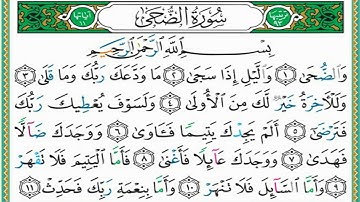 سُورَةُ الضُّحَىٰ
بِسْمِ اللَّهِ الرَّحْمَٰنِ الرَّحِيمِ
وَٱلضُّحَىٰ ١ وَٱلَّيْلِ إِذَا سَجَىٰ ٢ مَا وَدَّعَكَ رَبُّكَ وَمَا قَلَىٰ
٣ وَلَلْءَاخِرَةُ خَيْرٌ لَّكَ مِنَ ٱلْأُولَىٰ ٤ وَلَسَوْفَ يُعْطِيكَ رَبُّكَ
فَتَرْضَىٰٓ ٥ أَلَمْ يَجِدْكَ يَتِيمًا فَـَٔاوَىٰ ٦ وَوَجَدَكَ ضَآلًّا
فَهَدَىٰ ٧ وَوَجَدَكَ عَآئِلًا فَأَغْنَىٰ ٨ فَأَمَّا ٱلْيَتِيمَ فَلَا تَقْهَرْ
٩ وَأَمَّا ٱلسَّآئِلَ فَلَا تَنْهَرْ ١٠ وَأَمَّا بِنِعْمَةِ رَبِّكَ فَحَدِّثْ ١١